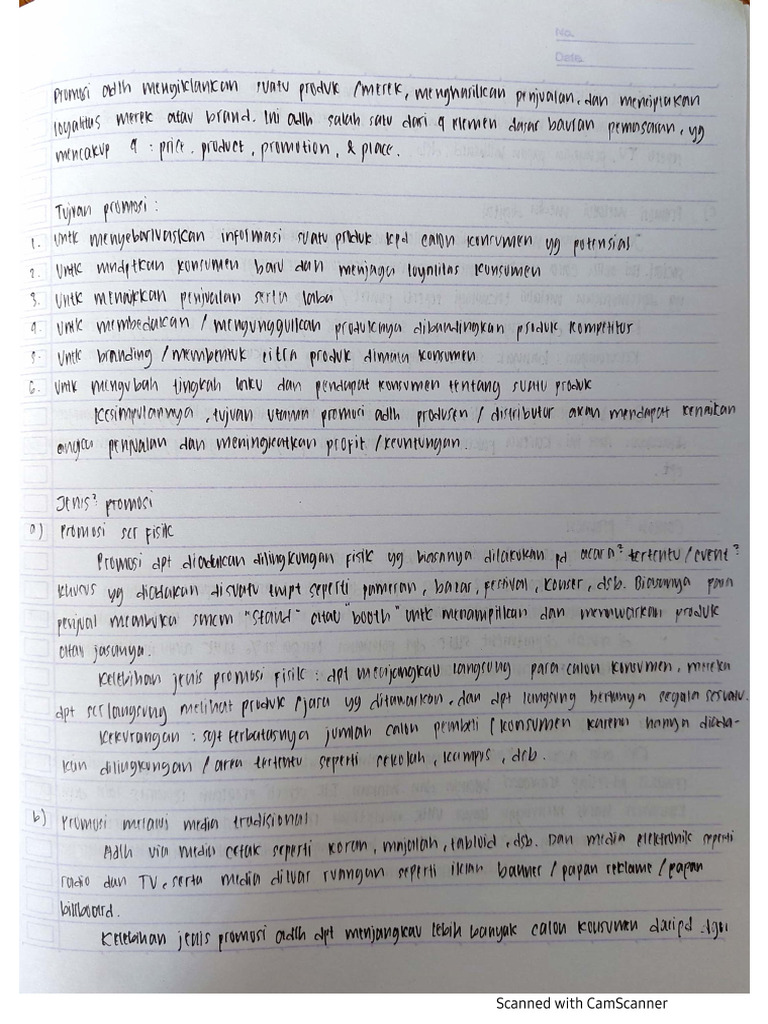 No.
Date.
Promosi adlh mengiklankan suatu produk / merek, menghasilkan penjualan, dan menciptakan
loyalitas merek atau brand. Ini adlh salah satu dari 4 elemen dasar bauran pemasaran, yg
mencakup 4 : price, product, promotion, & place.
Tujuan promosi :
1. Untk menyebarluaskan informasi suatu produk kpd calon konsumen yg potensial
2. Untk mndptkan konsumen baru dan menjaga loyalitas konsumen
3. Untk menaikkan penjualan serta laba
4. Untk membedakan / mengunggulkan produknya dibandingkan produk kompetitor
5. Untk branding / membentuk citra produk dimata konsumen
6. Untk mengubah tingkah laku dan pendapat konsumen tentang suatu produk
Kesimpulannya, tujuan utama promosi adlh produsen / distributor akan mendapat kenaikan
angka penjualan dan meningkatkan profit / keuntungan.
Jenis² promosi
a) Promosi scr fisik
Promosi dpt diadakan dilingkungan fisik yg biasanya dilakukan pd acara² tertentu / event²
khusus yg diadakan disuatu tmpt seperti pameran, bazar, festival, konser, dsb. Biasanya para
penjual membuka smcm "stand" atau "booth" untk menampilkan dan menawarkan produk
atau jasanya.
Kelebihan jenis promosi fisik : dpt menjangkau langsung para calon konsumen, mereka
dpt scr langsung melihat produk / jasa yg ditawarkan, dan dpt langsung bertanya segala sesuatu.
Kekurangan : sgt terbatasnya jumlah calon pembeli / konsumen karena hanya diada-
kan dilingkungan / area tertentu seperti sekolah, kampus, dsb.
b) Promosi melalui media tradisional
Adlh via media cetak seperti koran, majalah, tabloid, dsb. Dan media elektronik seperti
radio dan TV, serta media diluar ruangan seperti iklan banner / papan reklame / papan
billboard.
Kelebihan jenis promosi adlh dpt menjangkau lebih banyak calon konsumen daripd
Scanned with CamScanner